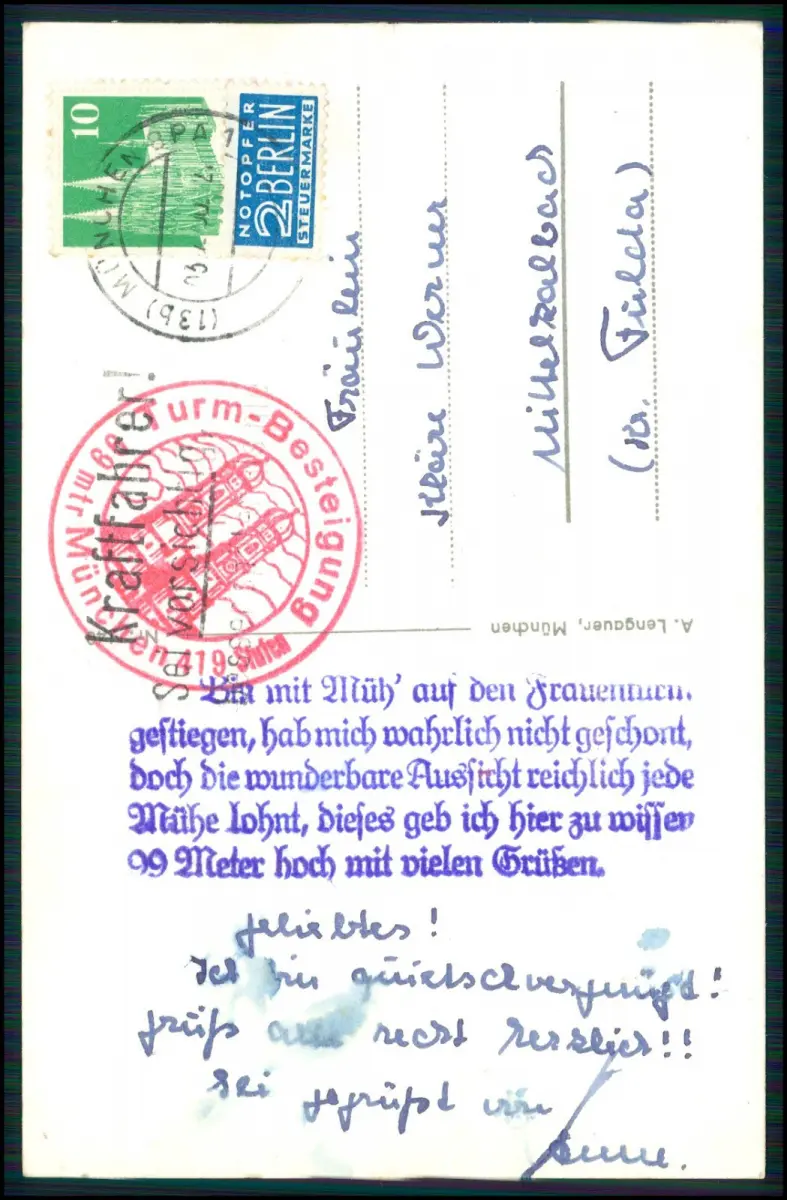 10
NOTOPFER
2 BERLIN
STEUERMARKE
(13b) MÜNCHEN
Kraftfahrer!
Sei vorsichtig
Turm-Besteigung
99 mtr München 419 Stufen
Fräulein
Kläre Werner
Mittelkalbach
(Kr. Fulda)
A. Lengauer, München
Bin mit Müh' auf den Frauenturm
gestiegen, hab mich wahrlich nicht geschont,
doch die wunderbare Aussicht reichlich jede
Mühe lohnt, dieses geb ich hier zu wissen
99 Meter hoch mit vielen Grüßen.
geliebtes!
Ich bin quietschvergnügt!
grüß alle recht herzlich!!
Sei gegrüßt von
Anne.